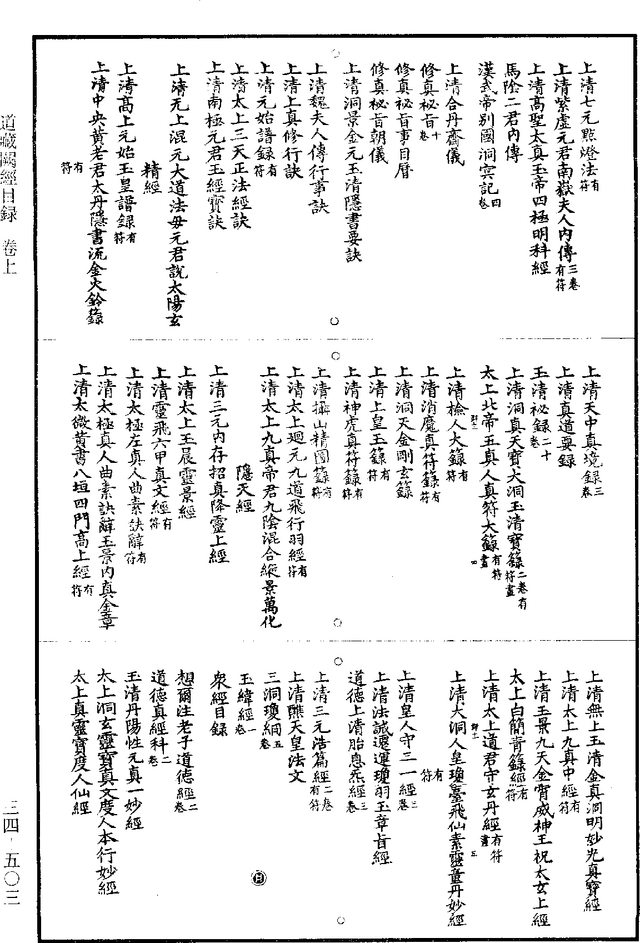 道藏闕經目録 卷上
三四-五〇三
上清七元點燈法有符
上清紫虛元君南嶽夫人內傳三卷有符
上清高聖太真玉帝四極明科經
馬陰二君內傳
漢武帝別國洞冥記四卷
上清合丹齋儀
修真祕旨十卷
修真祕旨事目曆
修真祕旨朝儀
上清洞景金元玉清隱書要訣
上清魏夫人傳行事訣
上清上真修行訣
上清元始譜錄有符
上清太上三天正法經訣
上清南極元君玉經寶訣
上清无上混元大道法母元君說太陽玄
精經
上清高上元始玉皇譜錄有符
上清中央黃老君太丹隱書流金火鈴籙
有符
上清天中真境錄三卷
上清真道要録
玉清祕錄二十卷
上清洞真天寶大洞玉清寶籙二卷有符畫
太上北帝五真人真符大籙有符畫
上清檢人大籙有符
上清消魔真符籙有符
上清洞天金剛玄籙
上清上皇玉籙有符
上清神虎真符籙有符
上清攝山精圖籙有符
上清太上迴元九道飛行羽經有符
上清太上九真帝君九陰混合縱景萬化
隱天經
上清三元內存招真降靈上經
上清太上玉晨靈景經
上清靈飛六甲真文經有符
上清太極左真人曲素訣辭有符
上清太極真人曲素訣辭玉景內真金章
上清太微黃書八垣四門高上經有符
上清無上玉清金真洞明妙光真寶經
上清太上九真中經有符
上清玉景九天金霄威神王祝太玄上經
太上白簡青籙經有符
上清太上道君守玄丹經有符畫
上清大洞人皇瓊臺飛仙素靈童丹妙經
有符
上清皇人守三一經三卷
上清法誡遷運瓊羽玉章旨經
道德上清胎息炁經三卷
上清三元浩篇經二卷有符
上清醮天皇法文
三洞瓊綱五卷
玉緯經一卷
衆經目録
想爾注老子道德經二卷
道德真經科二卷
玉清丹陽性元真一妙經
太上洞玄靈寶真文度人本行妙經
太上真靈寶度人仙經